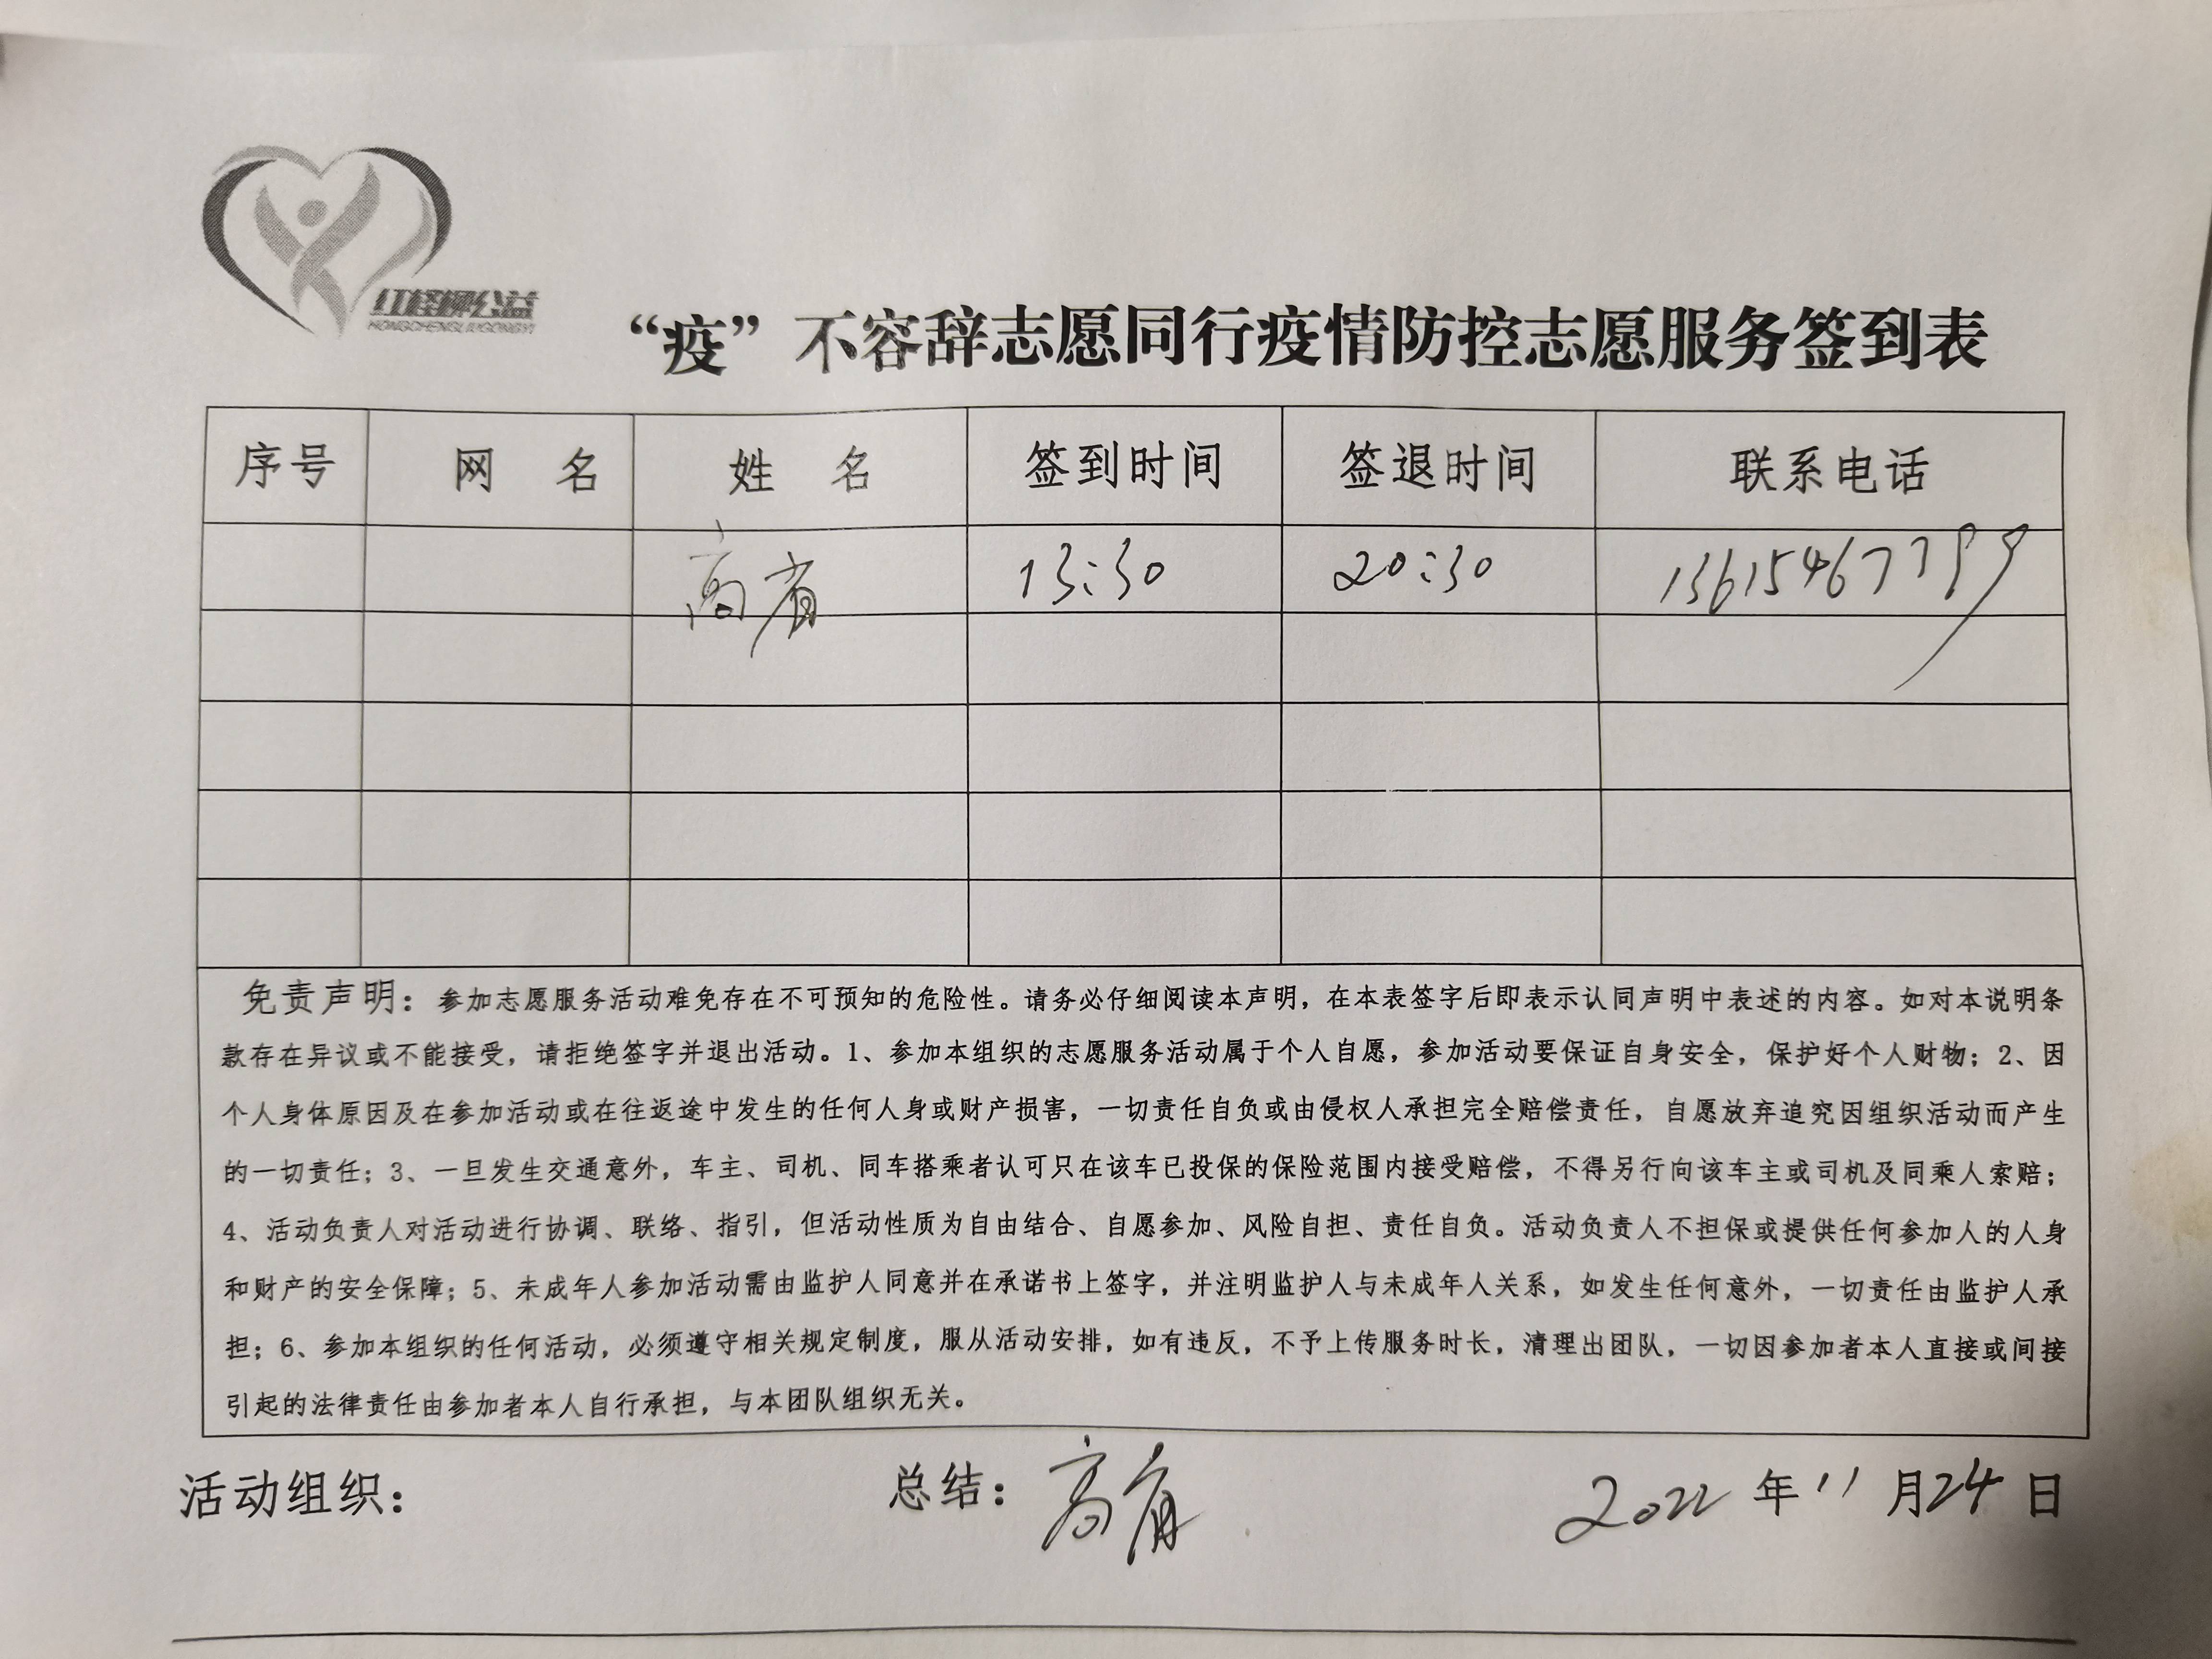 红柽柳公益
HONGCHENGLIUGONGYI
“疫”不容辞志愿同行疫情防控志愿服务签到表
序号 网 名 姓 名 签到时间 签退时间 联系电话
高 13:30 20:30 13615467799
免责声明：参加志愿服务活动难免存在不可预知的危险性。请务必仔细阅读本声明，在本表签字后即表示认同声明中表述的内容。如对本说明条
款存在异议或不能接受，请拒绝签字并退出活动。1、参加本组织的志愿服务活动属于个人自愿，参加活动要保证自身安全，保护好个人财物；2、因
个人身体原因及在参加活动或在往返途中发生的任何人身或财产损害，一切责任自负或由侵权人承担完全赔偿责任，自愿放弃追究因组织活动而产生
的一切责任；3、一旦发生交通意外，车主、司机、同车搭乘者认可只在该车已投保的保险范围内接受赔偿，不得另行向该车主或司机及同乘人索赔；
4、活动负责人对活动进行协调、联络、指引，但活动性质为自由结合、自愿参加、风险自担、责任自负。活动负责人不担保或提供任何参加人的人身
和财产的安全保障；5、未成年人参加活动需由监护人同意并在承诺书上签字，并注明监护人与未成年人关系，如发生任何意外，一切责任由监护人承
担；6、参加本组织的任何活动，必须遵守相关规定制度，服从活动安排，如有违反，不予上传服务时长，清理出团队，一切因参加者本人直接或间接
引起的法律责任由参加者本人自行承担，与本团队组织无关。
活动组织： 总结：高 2022年11月24日